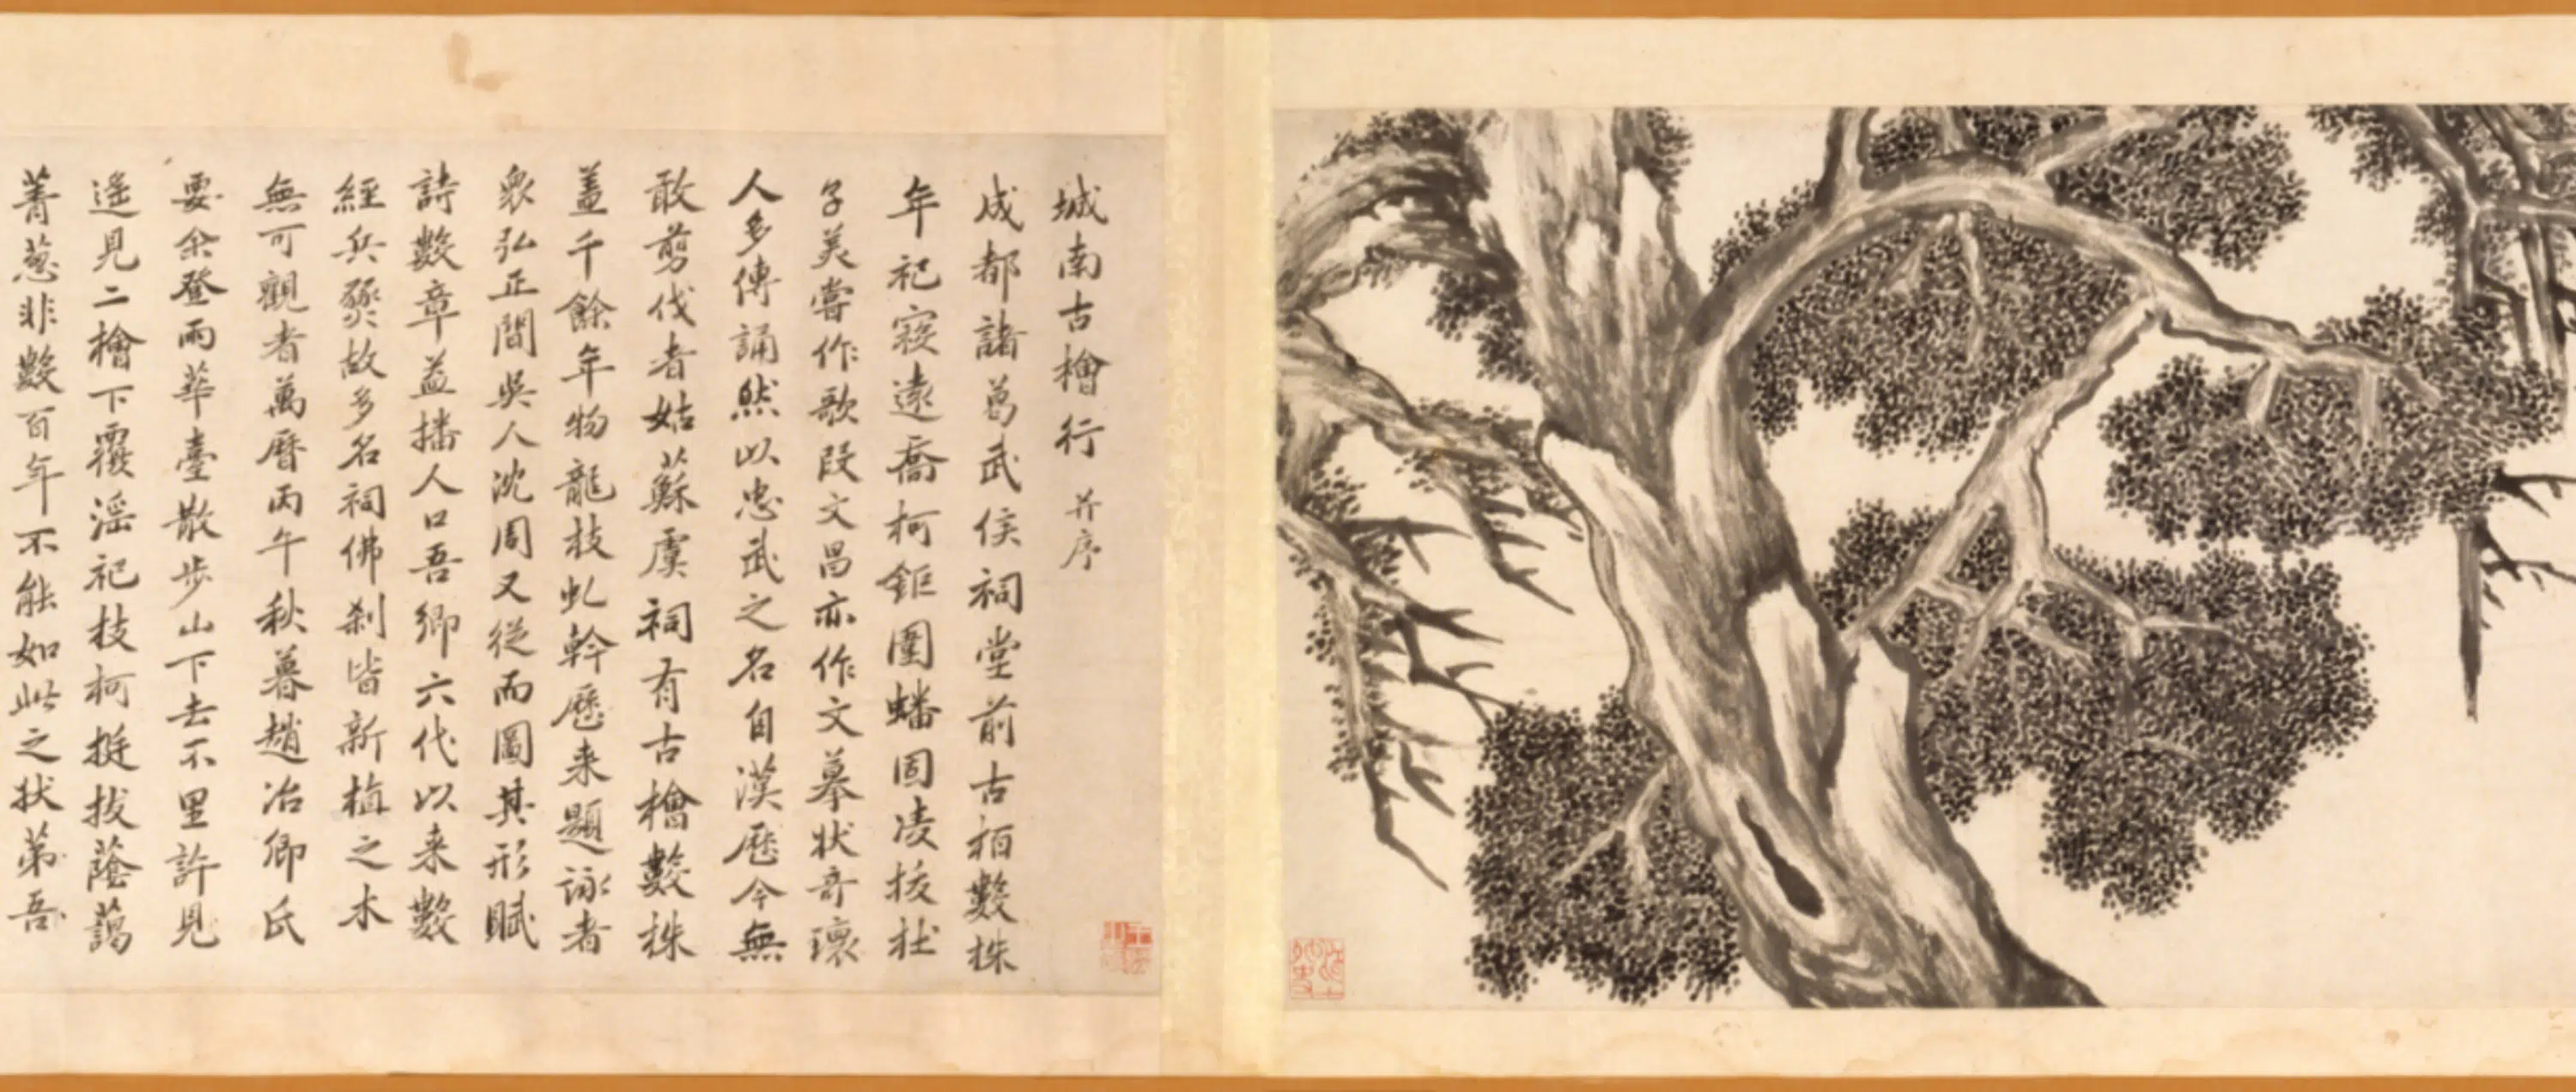 城南古檜行 并序
成都諸葛武侯祠堂前古栢數株
年祀寖遠喬柯鉅圍蟠固凌拔杜
子美嘗作歌段文昌亦作文摹狀奇瓌
人多傳誦然以忠武之名自漢歷今無
敢剪伐者姑蘇虞祠有古檜數株
葢千餘年物龍枝虬幹歷来題詠者
衆弘正間吳人沈周又從而圖其形賦
詩數章益播人口吾鄉六代以来數
經兵燹故多名祠佛刹皆新植之木
無可觀者萬曆丙午秋暮趙冶卿氏
要余登雨華臺散步山下去不里許見
遥見二檜下覆淫祀枝柯挺拔蔭藹
菁葱非數百年不能如此之状苐吾